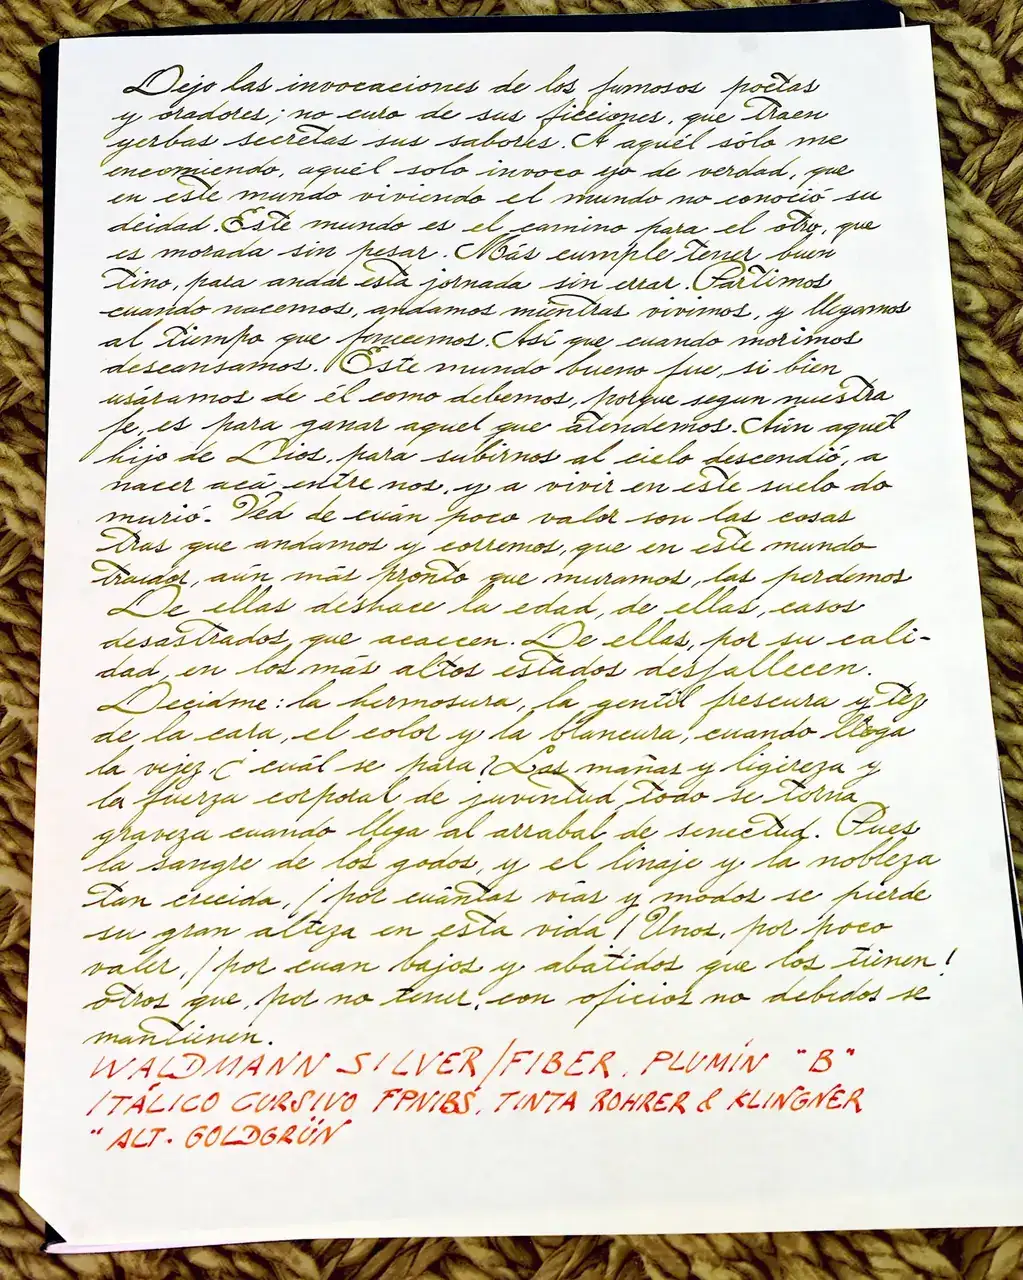 Dejo las invocaciones de los famosos poetas
y oradores; no curo de sus ficciones, que traen
yerbas secretas sus sabores. A aquél sólo me
encomiendo, aquél solo invoco yo de verdad, que
en este mundo viviendo el mundo no conoció su
deidad. Este mundo es el camino para el otro, que
es morada sin pesar. Más cumple tener buen
tino, para andar esta jornada sin errar. Partimos
cuando nacemos, andamos mientras vivimos, y llegamos
al tiempo que fenecemos. Así que cuando morimos
descansamos. Este mundo bueno fue, si bien
usáramos de él como debemos, porque segun nuestra
fe, es para ganar aquel que atendemos. Aún aquél
hijo de Dios, para subirnos al cielo descendió, a
nacer acá entre nos, y a vivir en este suelo do
murió. Ved de cuán poco valor son las cosas
tras que andamos y corremos, que en este mundo
traidor, aún más pronto que muramos, las perdemos
De ellas deshace la edad, de ellas, casos
desastrados, que acaecen. De ellas, por su cali-
dad, en los más altos estados desfallecen.
Decidme: la hermosura, la gentil frescura y tez
de la cara, el color y la blancura, cuando llega
la vejez, ¿ cuál se para? Las mañas y ligereza y
la fuerza corporal de juventud, todo se torna
graveza cuando llega al arrabal de senectud. Pues
la sangre de los godos, y el linaje y la nobleza
tan crecida, ¡por cuántas vías y modos se pierde
su gran alteza en esta vida! Unos, por poco
valer, ¡por cuan bajos y abatidos que los tienen!
otros que, por no tener, con oficios no debidos se
mantienen.
WALDMANN SILVER/FIBER. PLUMÍN "B"
ITÁLICO CURSIVO FPNIBS. TINTA ROHRER & KLINGNER
"ALT- GOLDGRÜN